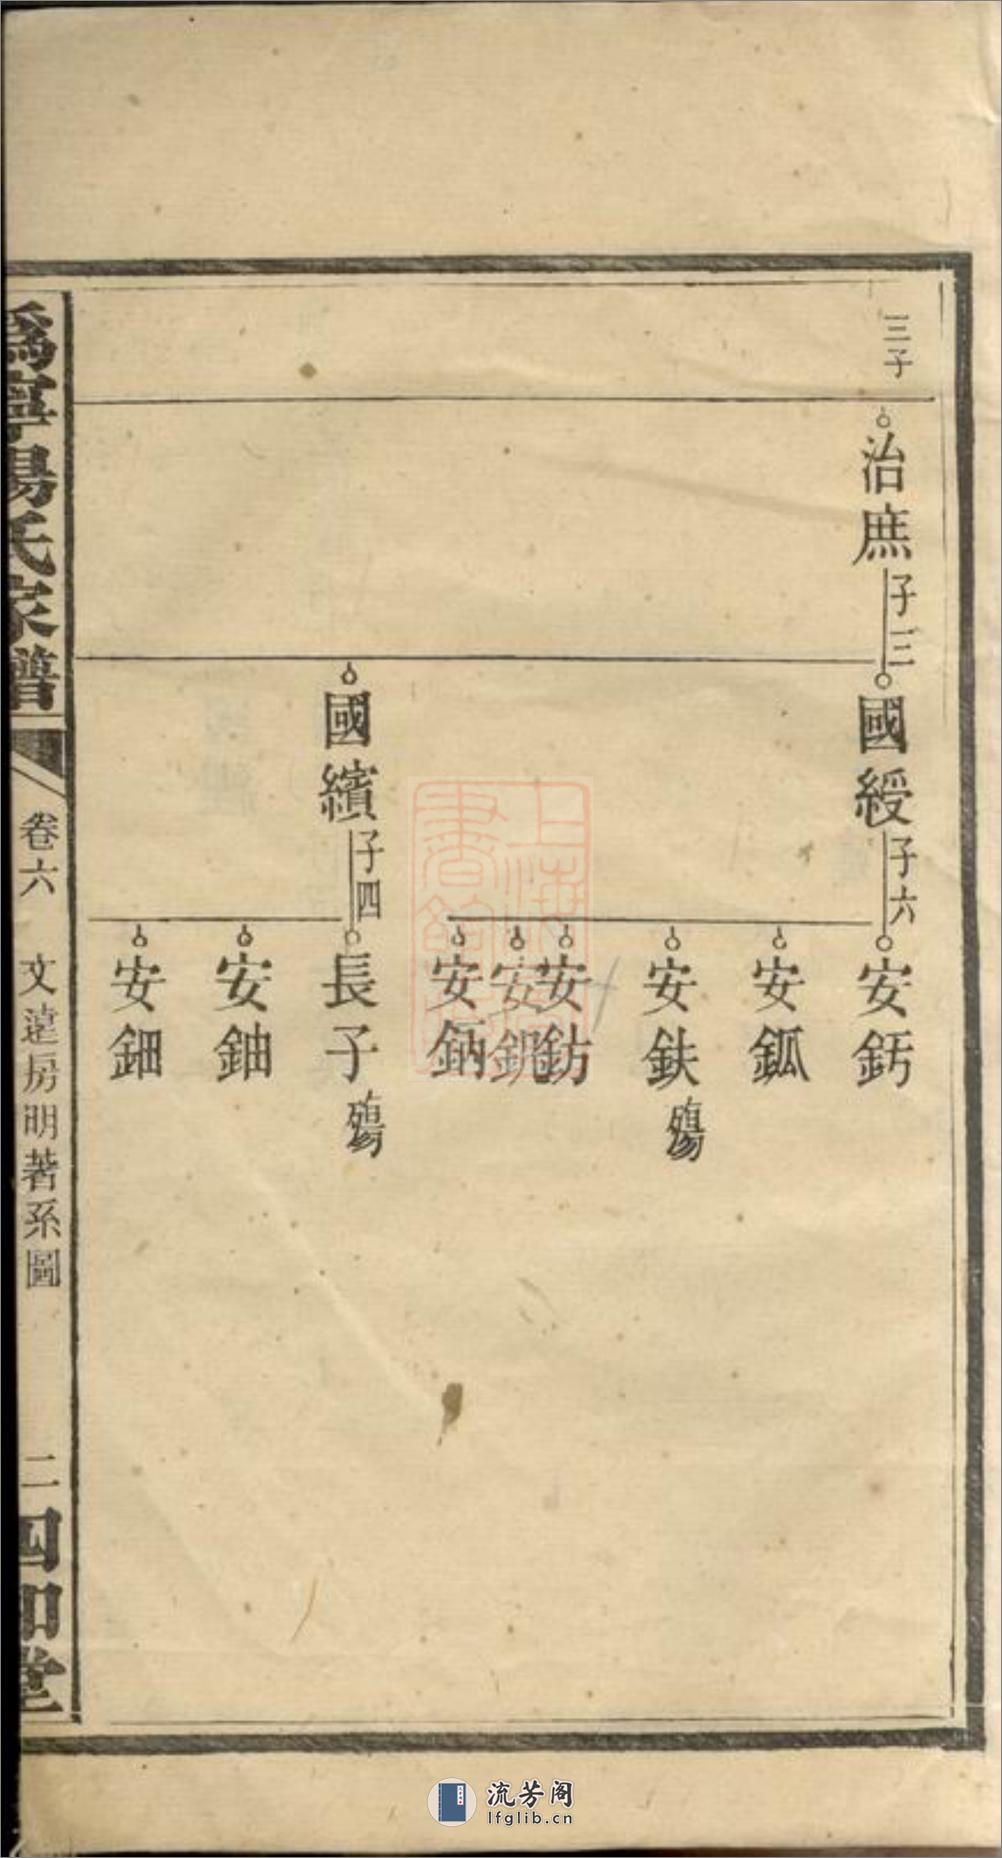 三子
治庶
子三
國綬
子六
安鈣
安鈲
安鈇
殤
安鈁
安
安鈵
國繽
子四
長子
殤
安鈾
安鈿
爲寧湯氏家譜
卷六
文遠房明著系圖
二
四知堂
上海圖書館藏
流芳阁
lfglib.cn